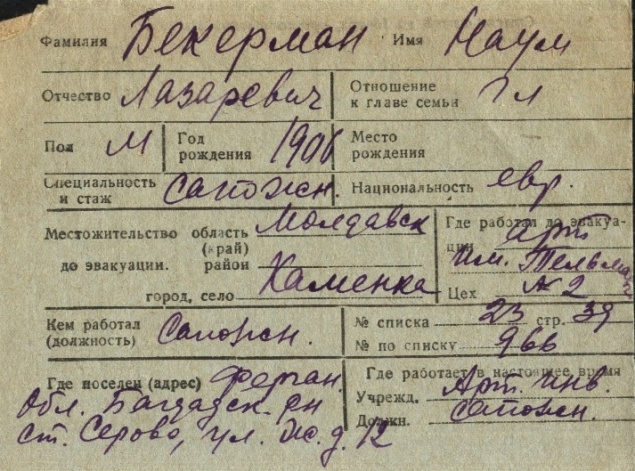 Фамилия Бекерман Имя Наум
Отчество Лазаревич Отношение к главе семьи Гл
Пол М Год рождения 1906 Место рождения
Специальность и стаж сапожн. Национальность евр.
Местожительство область (край) Молдавск
до эвакуации. район
город, село Каменка
Где работал до эвакуации арт
им. Тельмана
Цех № 2
Кем работал (должность) Сапожн.
№ списка 23 стр. 39
№ по списку 966
Где поселен (адрес) Ферган.
Обл. Багдадск. рн
ст. Серово, ул. д. 12
Где работает в настоящее время
Учрежд. Арт. инв.
Должн. сапожн.